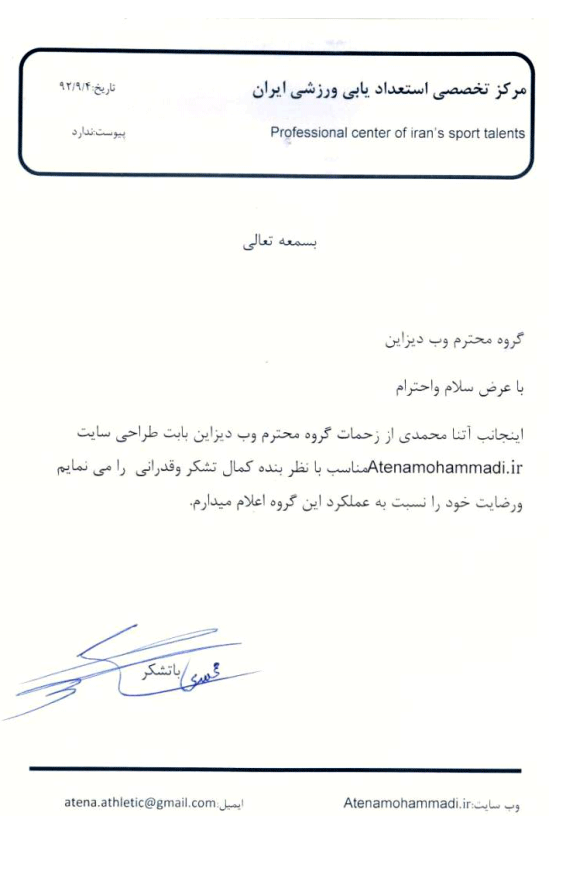 مرکز تخصصی استعداد یابی ورزشی ایران
تاریخ:۹۲/۹/۴
Professional center of iran's sport talents
پیوست:ندارد
بسمعه تعالی
گروه محترم وب دیزاین
با عرض سلام واحترام
اینجانب آتنا محمدی از زحمات گروه محترم وب دیزاین بابت طراحی سایت
Atenamohammadi.irمناسب با نظر بنده کمال تشکر وقدرانی را می نمایم
ورضایت خود را نسبت به عملکرد این گروه اعلام میدارم.
باتشکر
وب سایت:Atenamohammadi.ir
ایمیل:atena.athletic@gmail.com